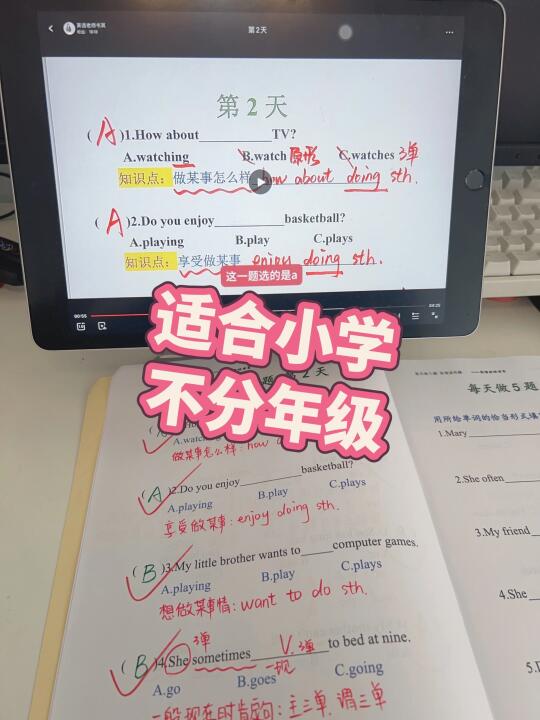 英语老师书苑
第2天
第 2 天
( A )1.How about____________TV?
A.watching B.watch 原形 C.watches 3单
知识点: 做某事怎么样 how about doing sth.
( A )2.Do you enjoy____________basketball?
A.playing B.play C.plays
知识点: 享受做某事 enjoy doing sth.
这一题选的是a
00:55
04:25
适合小学
不分年级
题 第 2 天
A.watching
做某事怎么样: how a
( A )2.Do you enjoy__________basketball?
A.playing B.play C.plays
享受做某事: enjoy doing sth.
( B )3.My little brother wants to______computer games.
A.playing B.play C.plays
想做某事情: want to do sth.
3单 V.3单
( B )4.She sometimes__________to bed at nine.
一现
A.go B.goes C.going
一般现在时肯定句: 主三单, 谓三单
每天做 5 题
用所给单词的恰当形式填
1.Mary
2.She often
3.My friend
4.She
5.